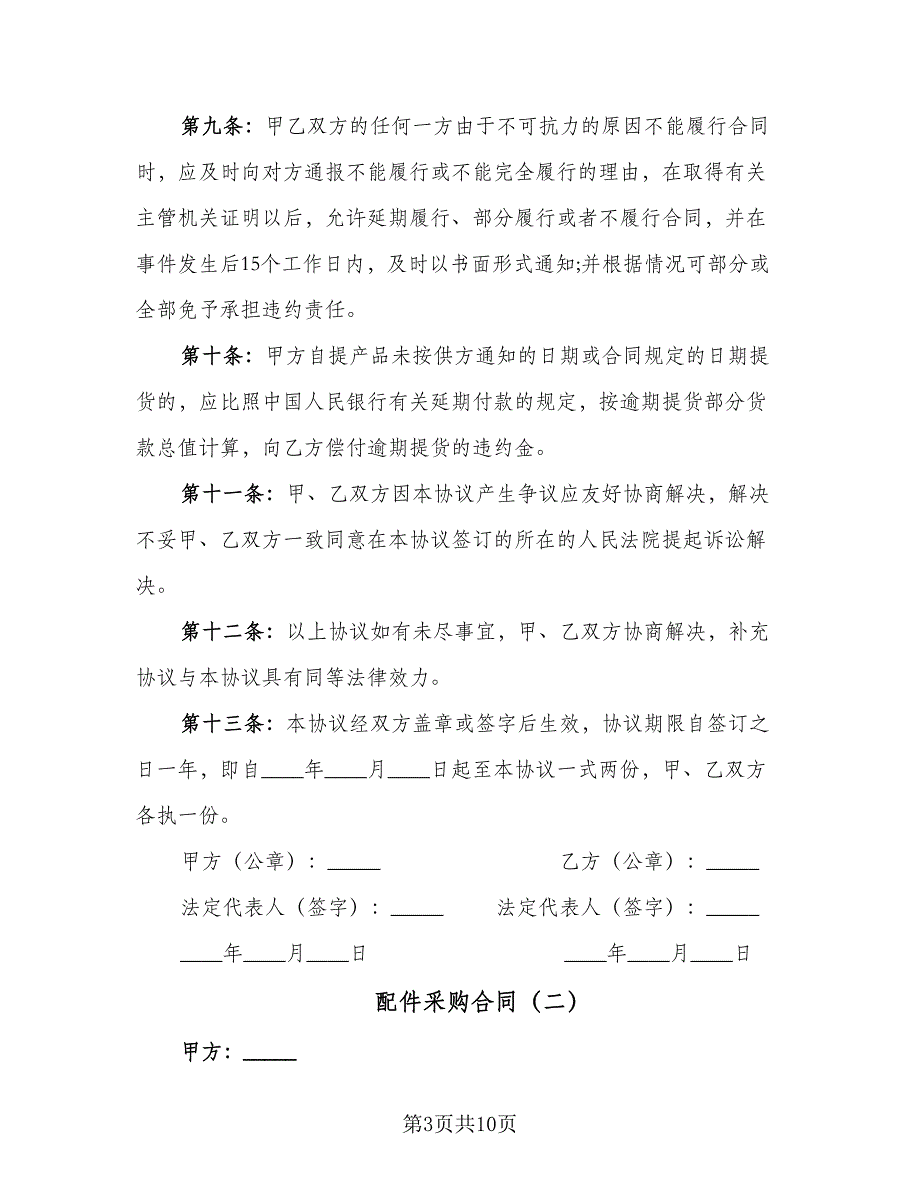 第九条：甲乙双方的任何一方由于不可抗力的原因不能履行合同
时，应及时向对方通报不能履行或不能完全履行的理由，在取得有关
主管机关证明以后，允许延期履行、部分履行或者不履行合同，并在
事件发生后15个工作日内，及时以书面形式通知;并根据情况可部分或
全部免予承担违约责任。
第十条：甲方自提产品未按供方通知的日期或合同规定的日期提
货的，应比照中国人民银行有关延期付款的规定，按逾期提货部分货
款总值计算，向乙方偿付逾期提货的违约金。
第十一条：甲、乙双方因本协议产生争议应友好协商解决，解决
不妥甲、乙双方一致同意在本协议签订的所在的人民法院提起诉讼解
决。
第十二条：以上协议如有未尽事宜，甲、乙双方协商解决，补充
协议与本协议具有同等法律效力。
第十三条：本协议经双方盖章或签字后生效，协议期限自签订之
日一年，即自____年____月____日起至本协议一式两份，甲、乙双方
各执一份。
甲方（公章）：_____ 乙方（公章）：_____
法定代表人（签字）：_____ 法定代表人（签字）：_____
____年____月____日 ____年____月____日
配件采购合同（二）
甲方：_____
第3页共10页